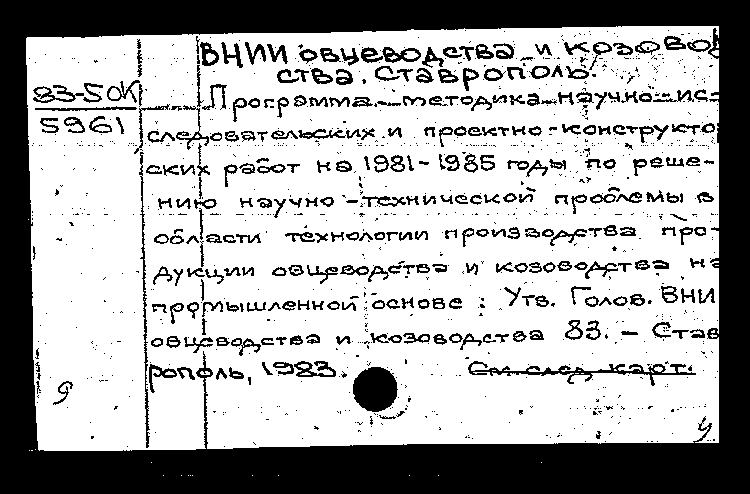 ВНИИ овцеводства и козовод
ства. Ставрополь.
83-5 ОК
5961
Программа-методика научно-ис-
следовательских и проектно-конструкто
ских работ на 1981-1985 годы по реше-
нию научно-технической проблемы в
области технологии производства про-
дукции овцеводства и козоводства на
промышленной основе : Утв. Голов. ВНИ
овцеводства и козоводства 83. - Став
рополь, 1983.
См след. карт.
9
у